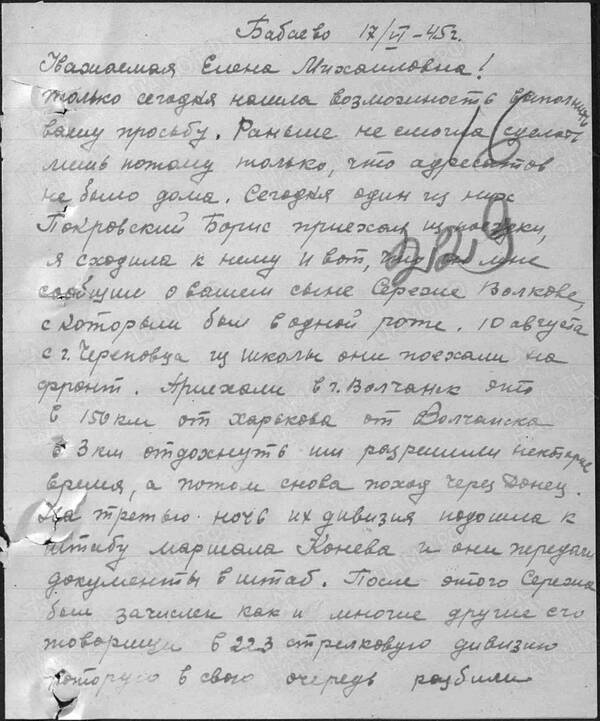 Бабаево 17/VI-45г.
Уважаемая Елена Михаиловна!
только сегодня нашла возможность выполнить
вашу просьбу. Раньше не смогла сделать
лишь потому только, что адресатов
не было дома. Сегодня один из них
Покровский Борис приехал из поездки,
я сходила к нему и вот, что он мне
сообщил о вашем сыне Сереже Волкове,
с которым был в одной роте. 10 августа
с г. Череповца из школы они поехали на
фронт. Приехали в г. Волчанск это
в 150 км от Харькова от Волчанска
в 3 км отдохнуть им разрешили некоторое
время, а потом снова поход через Донец.
На третью ночь их дивизия подошла к
штабу маршала Конева и они передали
документы в штаб. После этого Сережа
был зачислен как и многие другие его
товарищи в 223 стрелковую дивизию
которую в свою очередь разбили
229